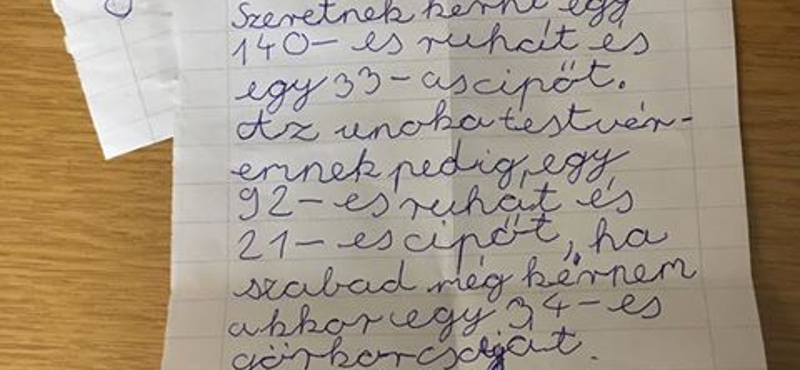 Szeretnék kérni egy
140-es ruhát és
egy 33-as cipőt.
Az unokatestvér-
emnek pedig, egy
92-es ruhát és
21-es cipőt, ha
szabad még kérnem
akkor egy 34-es